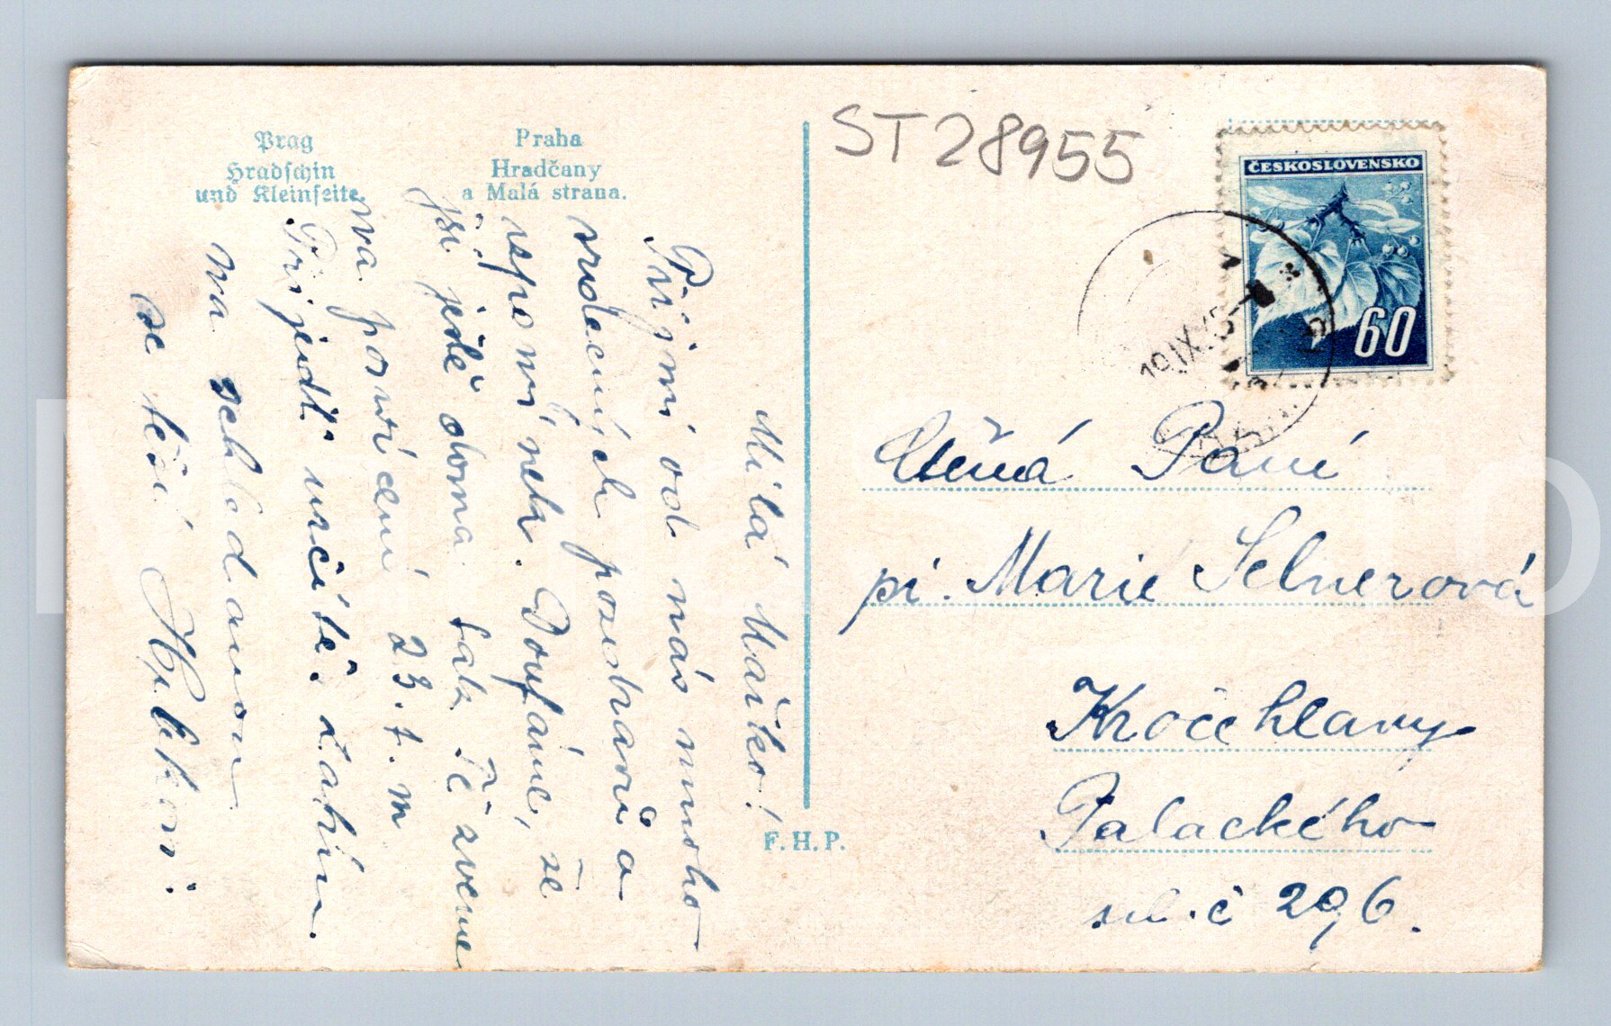 Prag
Hradschin
und Kleinseite.
Praha
Hradčany
a Malá strana.
ST28955
ČESKOSLOVENSKO
60
19.IX.45
Milá Mařko!
Přijmi od nás mnoho
srdečných pozdravů a
vzpomínek. Doufáme, že
jsi ještě doma tak Tě zveme
na posvícení 23. t. m
Přijeď určitě, zatím
na shledanou
se těší
F.H.P.
Ctěná Paní
pí. Marie Selnerová
Kročehlavy
Palackého
ul. č 296.